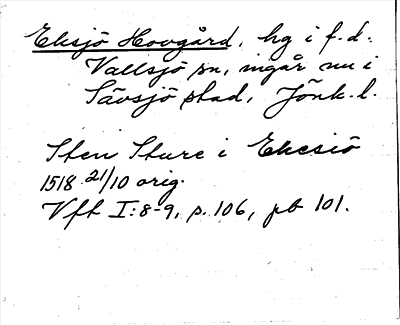 Eksjö Hovgård, hg i f.d.
Vallsjö sn, ingår nu i
Sävsjö stad, Jönk. l.
Sten Sture i Ekesiö
1518 21/10 orig.
Vft I:8-9, s. 106, pb 101.